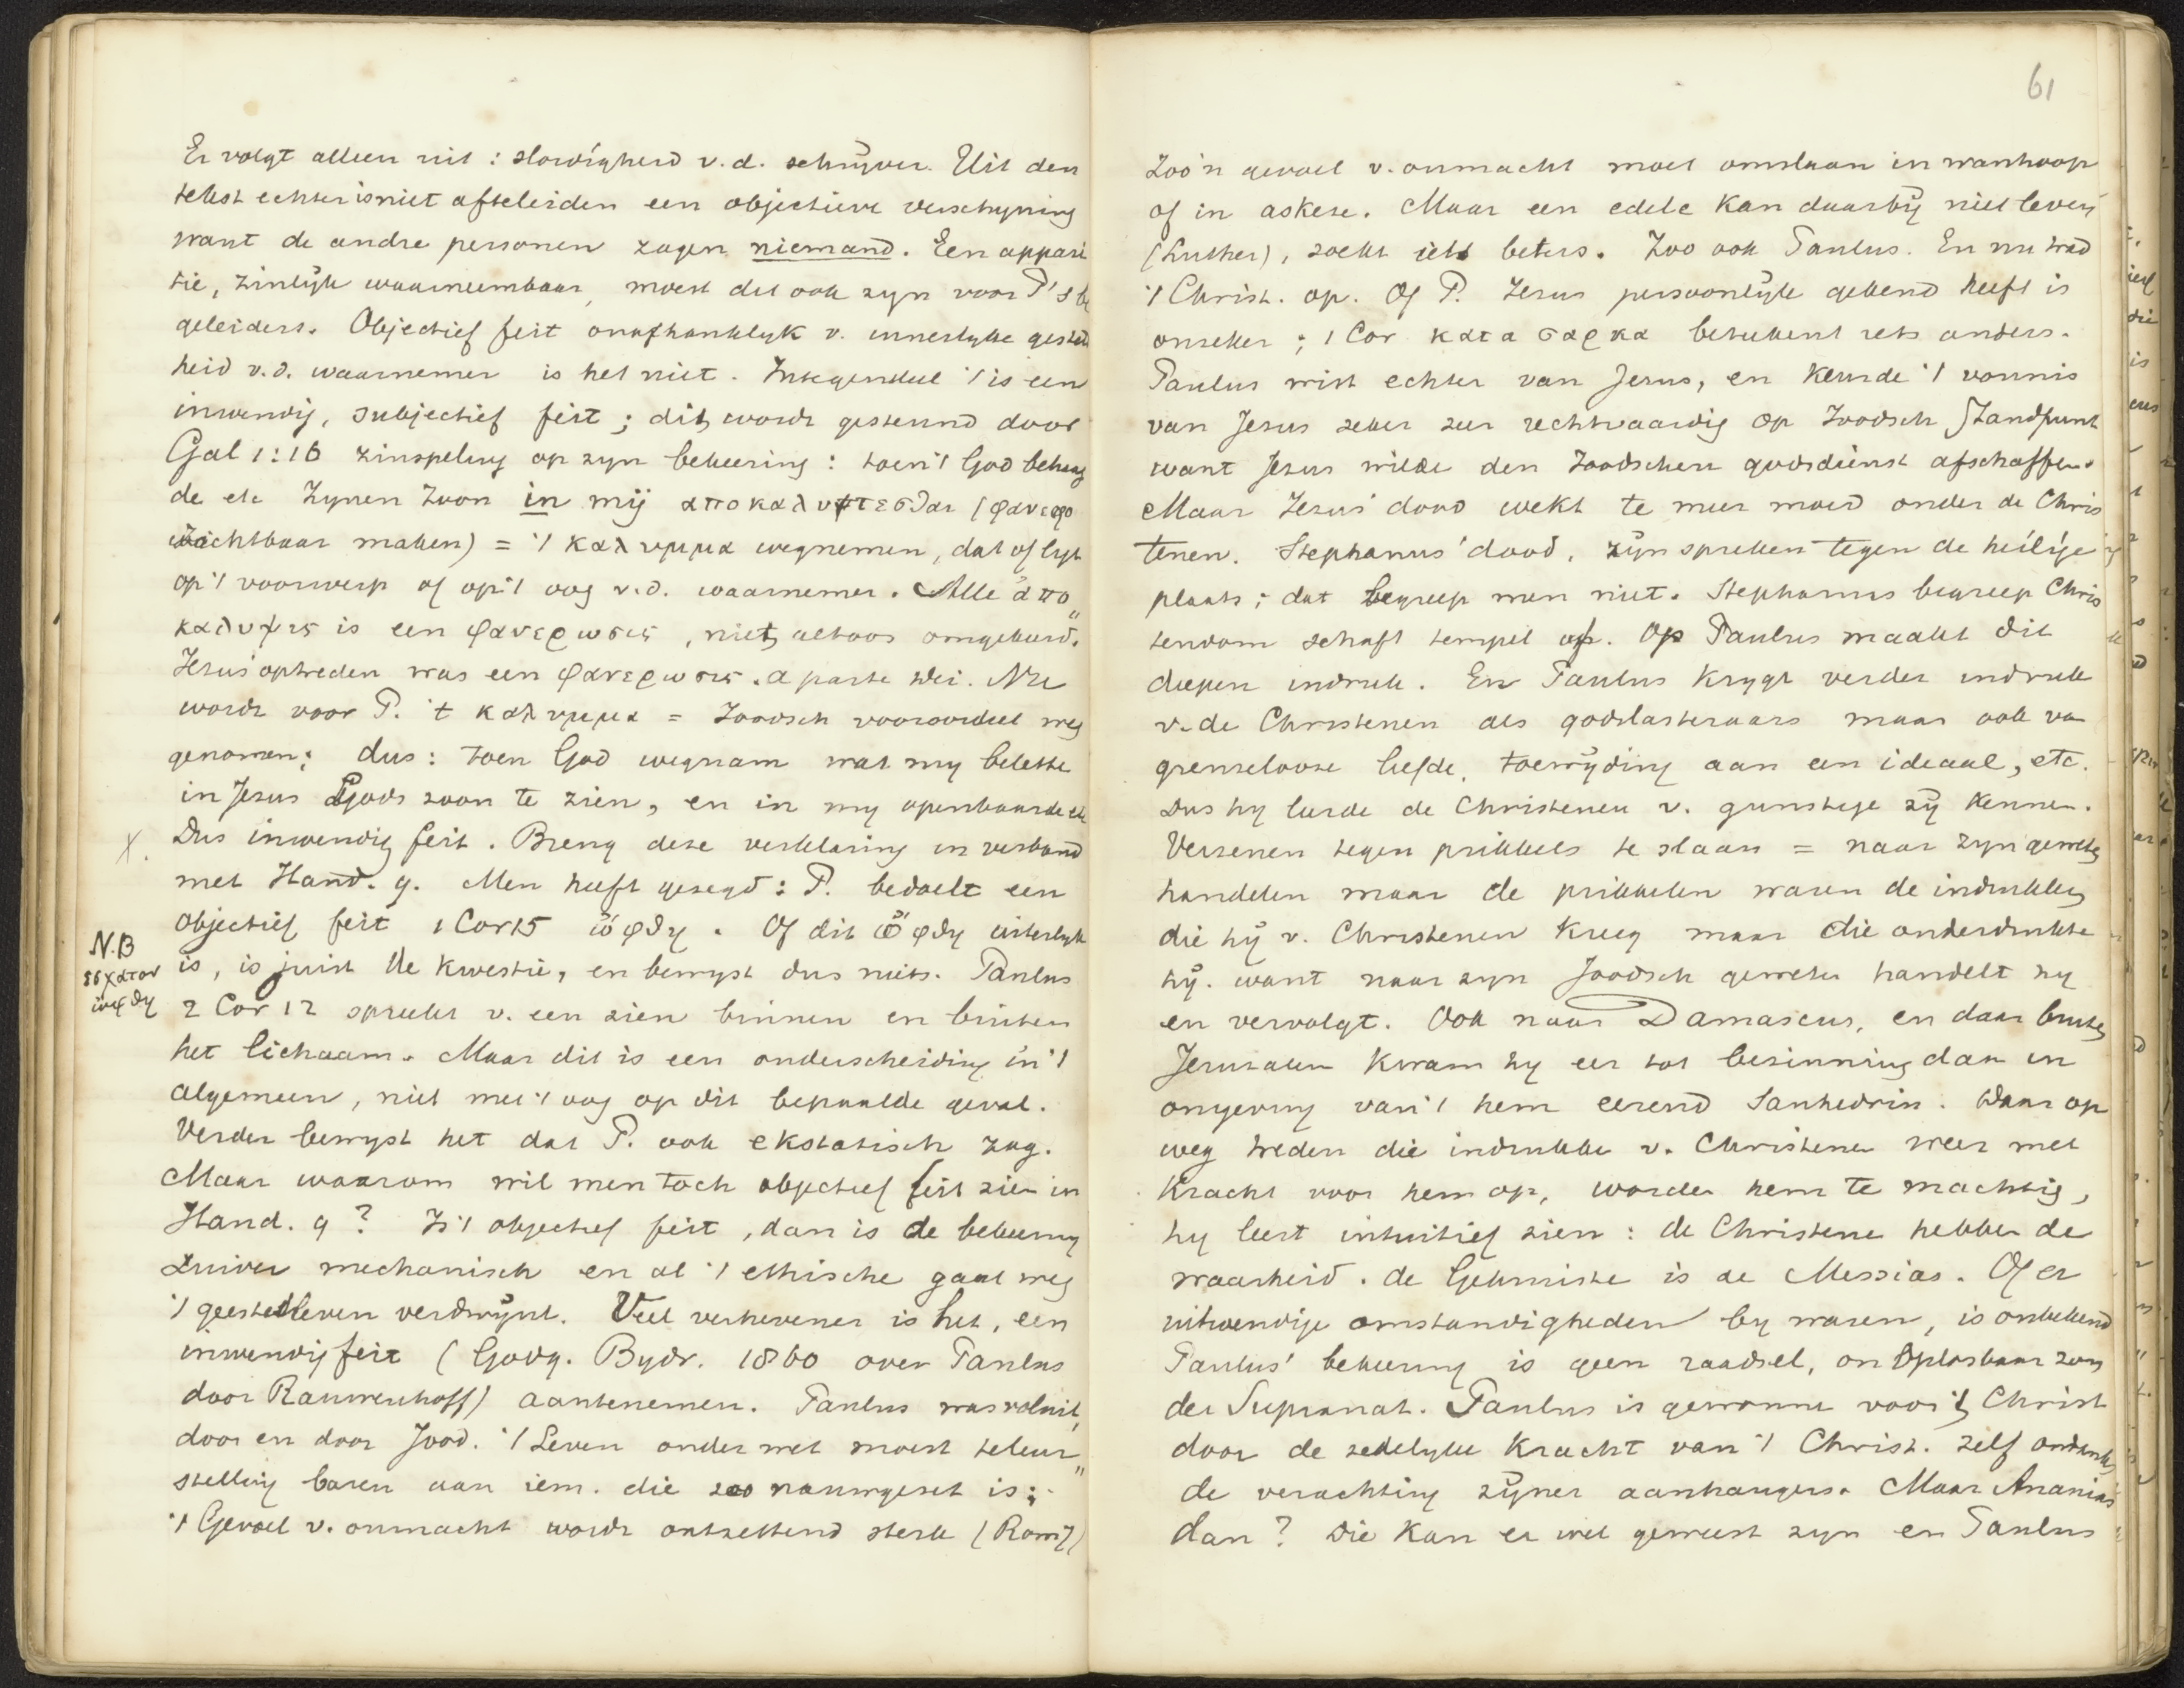 Er volgt alleen uit: slordigheid v.d. schrijver. Uit den
tekst echter is niet afteleiden een objectieve verschijning
want de andre personen zagen niemand. Een appari
tie, zinlijk waarneembaar, moest dit ook zyn voor P's be
geleiders. Objectief feit onafhanklyk v. innerlyke gesteld
heid v.d. waarnemer is het niet. Integendeel 't is een
inwendig, subjectief feit; dit wordt gesteund door
Gal 1:16 zinspeling op zyn bekeering: toen 't God behaag
de etc Zynen Zoon in mij αποκαλυπτεσθαι (φανερο
zichtbaar maken) = 't καλυμμα wegnemen, dat of ligt
op 't voorwerp of op 't oog v.d. waarnemer. Alle απο„
καλυψις is een φανερωσις, niet altoos omgekeerd.
Jezus' optreden was een φανερωσις. a parte Dei. Nu
wordt voor P. 't καλυμμα = Joodsch vooroordeel weg
genomen; dus: toen God wegnam wat my belette
in Jezus Gods zoon te zien, en in my openbaarde etc
X. Dus inwendig feit. Breng deze verklaring in verband
met Hand. 9. Men heeft gezegd: P. bedoelt een
objectief feit 1 Cor 15 ὤφθη. Of dit ὤφθη uiterlyk
N.B
εσχατον
ὤφθη
is, is juist de kwestie, en bewyst dus niets. Paulus
2 Cor 12 spreekt v. een zien binnen en buiten
het lichaam. Maar dit is een onderscheiding in 't
algemeen, niet met 't oog op dit bepaalde geval.
Verder bewyst het dat P. ook ekstatisch zag.
Maar waarom wil men toch objectief feit zien in
Hand. 9? Is 't objectief feit, dan is de bekeering
zuiver mechanisch en al 't ethische gaat weg
't geestesleven verdwijnt. Veel verhevener is het, een
inwendig feit (Godg. Bydr. 1860 over Paulus
door Rauwenhoff) aantenemen. Paulus was voluit,
door en door Jood. 't Leven onder wet moest teleur„
stelling baren aan iem. die zoo nauwgezet is;
't Gevoel v. onmacht wordt ontzettend sterk (Rom 7)
61
Zoo'n gevoel v. onmacht moet omslaan in wanhoop
of in askese. Maar een edele kan daarbij niet leven
(Luther), zoekt iets beters. Zoo ook Paulus. En nu trad
't Christ. op. Of P. Jezus persoonlijk gekend heeft is
onzeker; 1 Cor κατα σαρκα beteekent iets anders.
Paulus wist echter van Jezus, en keurde 't vonnis
van Jezus zeker zeer rechtvaardig op Joodsch standpunt
want Jezus wilde den Joodschen godsdienst afschaffen.
Maar Jezus' dood wekt te meer moed onder de Chris
tenen. Stephanus' dood, zijn spreken tegen de heilige
plaats; dat begreep men niet. Stephanus begreep Chris
tendom schaft tempel af. Op Paulus maakt dit
diepen indruk. En Paulus krygt verder indruk
v. de Christenen als godslasteraars maar ook van
grenselooze liefde, toewijding aan een ideaal, etc.
Dus hy leerde de Christenen v. gunstige zij kennen.
Verzenen tegen prikkels te slaan = naar zyn geweten
handelen maar de prikkelen waren de indrukken
die hij v. Christenen kreeg maar die onderdrukte
hij. want naar zyn Joodsch geweten handelt hy
en vervolgt. Ook naar Damascus, en daar buiten
Jeruzalem kwam hy eer tot bezinning dan in
omgeving van 't hem eerend Sanhedrin. Daar op
weg treden die indrukken v. Christenen weer met
kracht voor hem op, worden hem te machtig,
hy leert intuitief zien: de Christenen hebben de
waarheid. de Gekruiste is de Messias. Of er
uitwendige omstandigheden by waren, is onbekend
Paulus' bekeering is geen raadsel, onoplosbaar zon
der Supranat. Paulus is gewonnen voor 't Christ
door de zedelyke kracht van 't Christ. zelf ondanks
de verachting zijner aanhangers. Maar Ananias
dan? Die kan er wel geweest zyn en Paulus